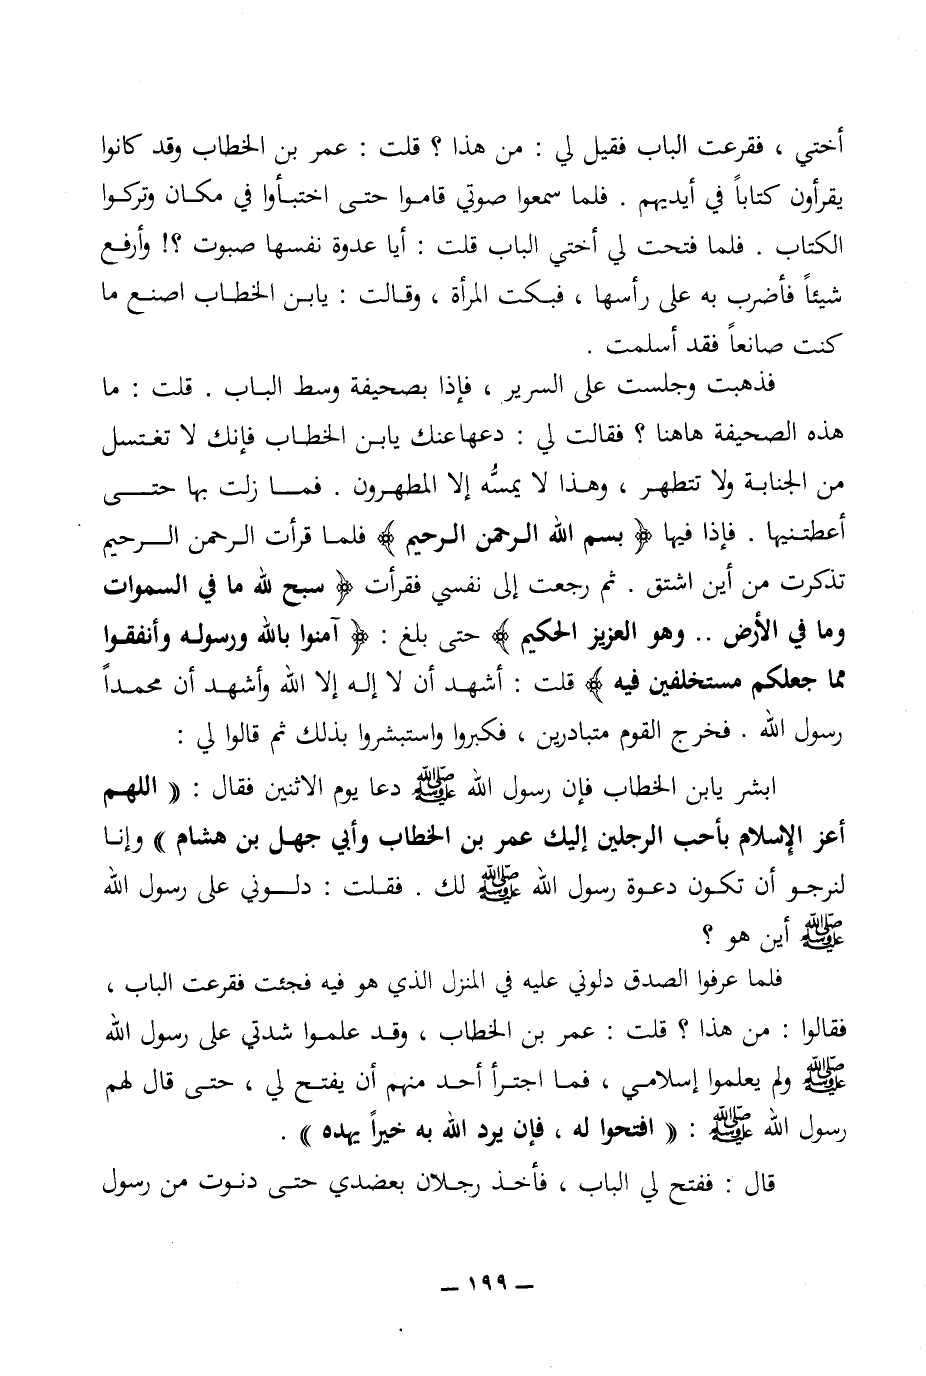 أختي ، فقرعت الباب فقيل لي : من هذا ؟ قلت : عمر بن الخطاب وقد كانوا
يقرأون كتاباً في أيديهم . فلما سمعوا صوتي قاموا حتى اختبأوا في مكان وتركوا
الكتاب . فلما فتحت لي أختي الباب قلت : أيا عدوة نفسها صبوت ؟! وأرفع
شيئاً فأضرب به على رأسها ، فبكت المرأة ، وقالت : يابن الخطاب اصنع ما
كنت صانعاً فقد أسلمت .
فذهبت وجلست على السرير ، فإذا بصحيفة وسط الباب . قلت : ما
هذه الصحيفة هاهنا ؟ فقالت لي : دعهاعنك يابن الخطاب فإنك لا تغتسل
من الجنابة ولا تتطهر ، وهذا لا يمسُّه إلا المطهرون . فما زلت بها حتى
أعطتنيها . فإذا فيها ﴿ بسم الله الرحمن الرحيم ﴾ فلما قرأت الرحمن الرحيم
تذكرت من أين اشتق . ثم رجعت إلى نفسي فقرأت ﴿ سبح لله ما في السموات
وما في الأرض .. وهو العزيز الحكيم ﴾ حتى بلغ : ﴿ آمنوا بالله ورسوله وأنفقوا
مما جعلكم مستخلفين فيه ﴾ قلت : أشهد أن لا إله إلا الله وأشهد أن محمداً
رسول الله . فخرج القوم متبادرين ، فكبروا واستبشروا بذلك ثم قالوا لي :
ابشر يابن الخطاب فإن رسول الله ﷺ دعا يوم الاثنين فقال : « اللهم
أعز الإسلام بأحب الرجلين إليك عمر بن الخطاب وأبي جهل بن هشام » وإنا
لنرجو أن تكون دعوة رسول الله ﷺ لك . فقلت : دلوني على رسول الله
ﷺ أين هو ؟
فلما عرفوا الصدق دلوني عليه في المنزل الذي هو فيه فجئت فقرعت الباب ،
فقالوا : من هذا ؟ قلت : عمر بن الخطاب ، وقد علموا شدتي على رسول الله
ﷺ ولم يعلموا إسلامي ، فما اجترأ أحد منهم أن يفتح لي ، حتى قال لهم
رسول الله ﷺ : « افتحوا له ، فإن يرد الله به خيراً يهده » .
قال : ففتح لي الباب ، فأخذ رجلان بعضدي حتى دنوت من رسول
ــ ١٩٩ ــ